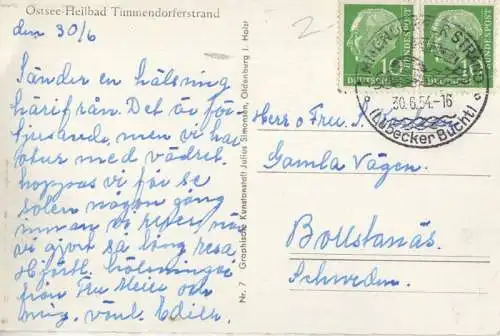 Ostsee-Heilbad Timmendorferstrand
den 30/6
Sänder en hälsning
härifrån. Det är för-
tjusande, men vi har
otur med vädret.
hoppas vi får se
solen någon gång
innan vi reser, när
vi gjort så lång resa
Hjärtl. hälsningar
från Fru Meier och
Nr. 7 Graphische Kunstanstalt Julius Simonsen, Oldenburg i. Holst
10
DEUTSCHE BUNDESPOST
10
30.6.54.-16
(Lübecker Bucht)
Herr o Fru
Gamla Vägen.
Bollstanäs.
Schweden.